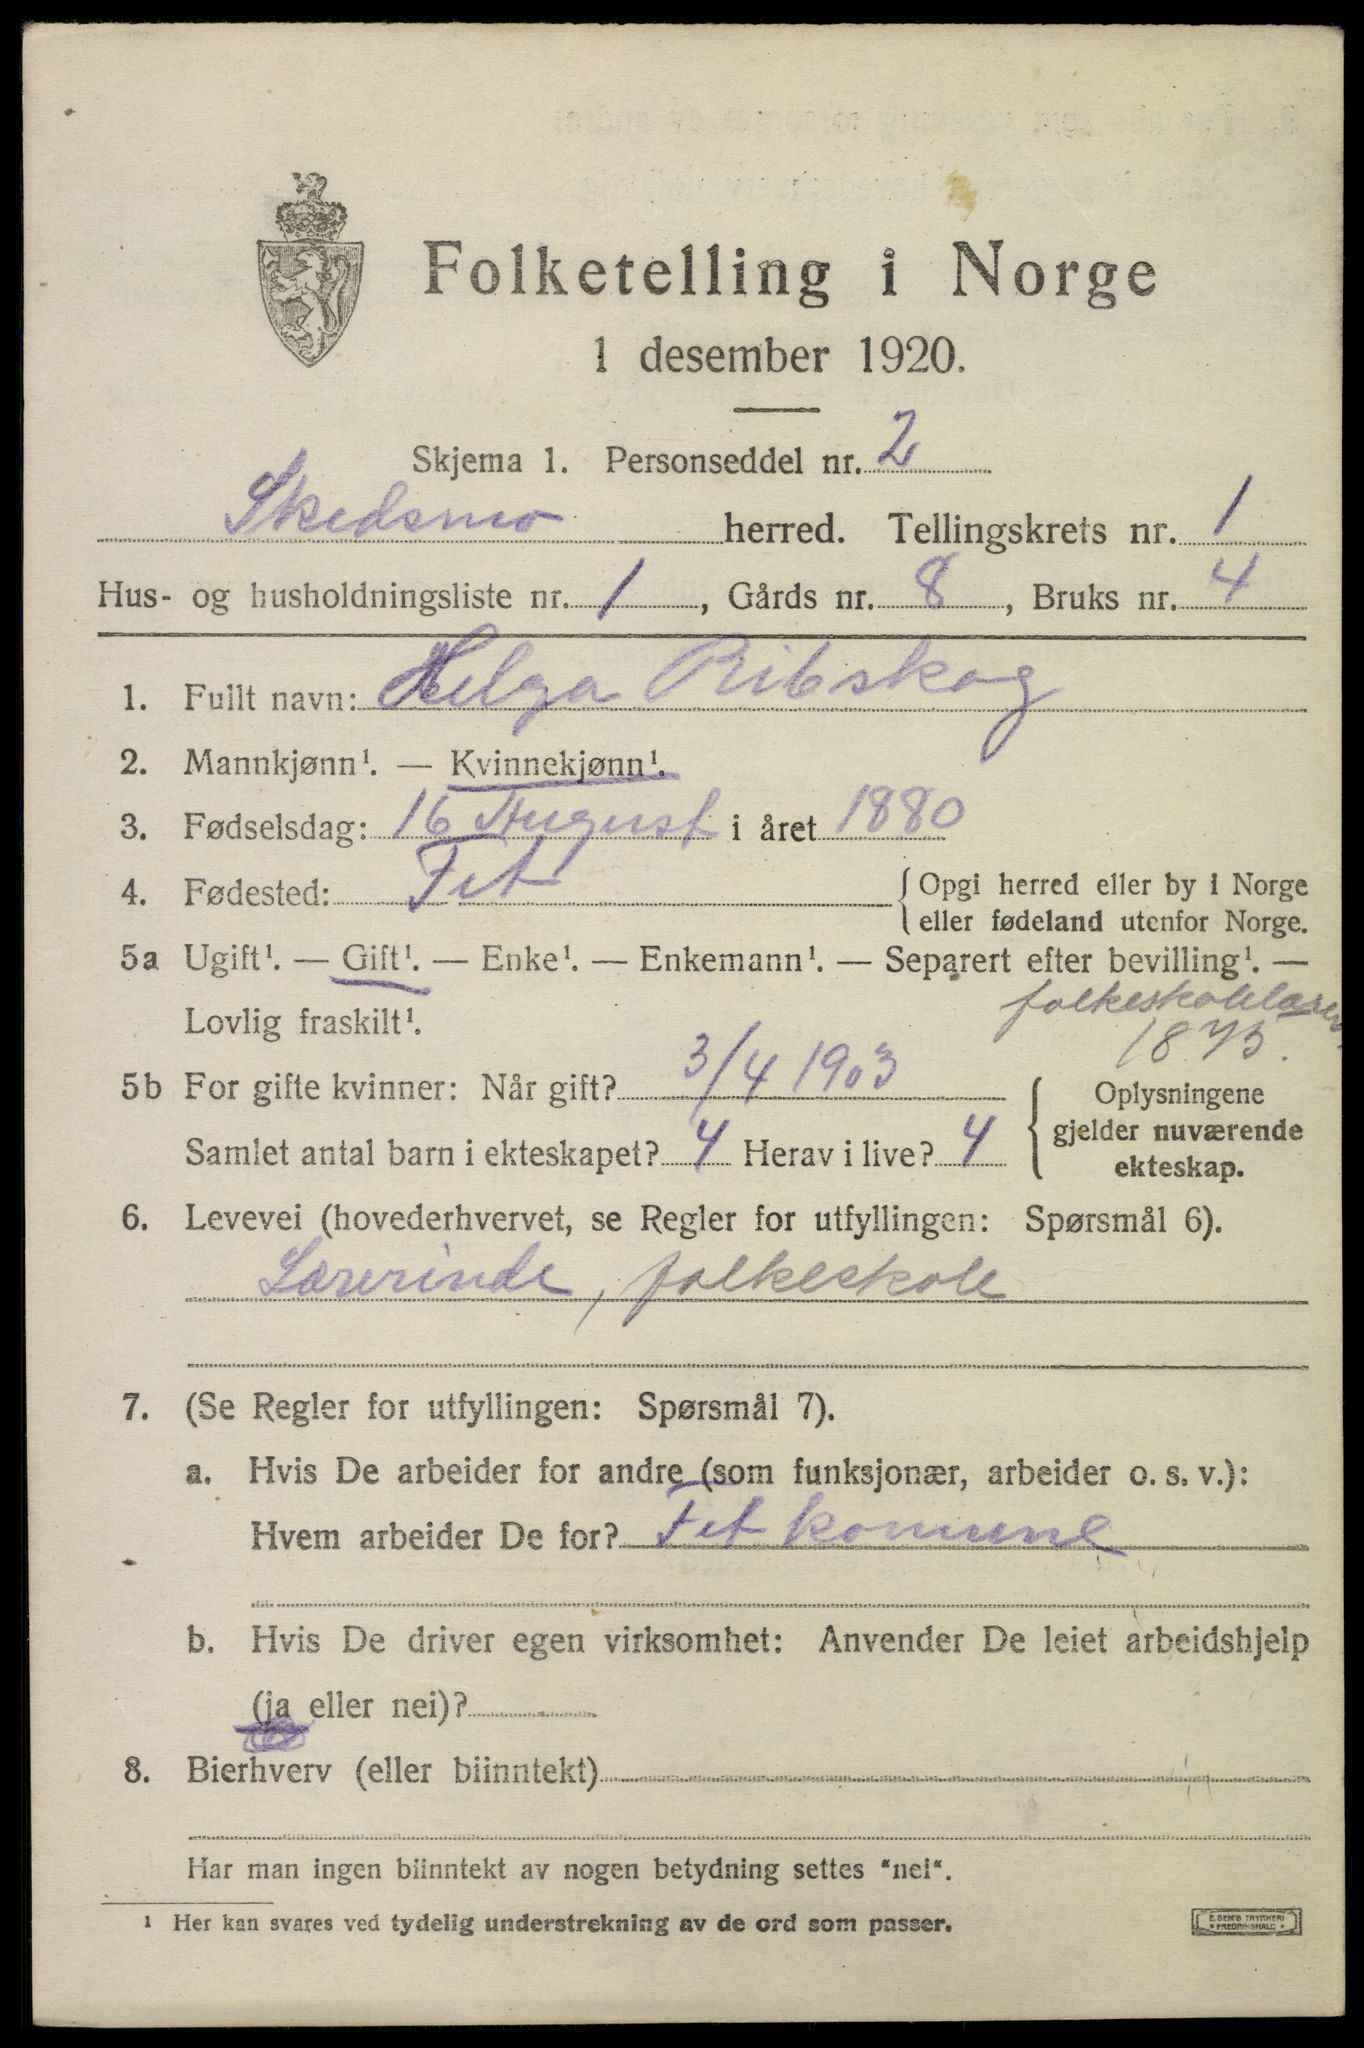 Folketelling i Norge
1 desember 1920.
Skjema 1. Personseddel nr. 2
Skedsmo herred. Tellingskrets nr. 1
Hus- og husholdningsliste nr. 1, Gårds nr. 8, Bruks nr. 4
1. Fullt navn: Helga Ribskog
2. Mannkjønn¹. — Kvinnekjønn¹.
3. Fødselsdag: 16 August i året 1880
4. Fødested: Fet { Opgi herred eller by i Norge
eller fødeland utenfor Norge.
5a Ugift¹. — Gift¹. — Enke¹. — Enkemann¹. — Separert efter bevilling¹. —
folkeskolelærer
Lovlig fraskilt¹.
1873.
5b For gifte kvinner: Når gift? 3/4 1903 { Oplysningene
gjelder nuværende
Samlet antal barn i ekteskapet? 4 Herav i live? 4
ekteskap.
6. Levevei (hovederhvervet, se Regler for utfyllingen: Spørsmål 6).
Lærerinde, folkeskole
7. (Se Regler for utfyllingen: Spørsmål 7).
a. Hvis De arbeider for andre (som funksjonær, arbeider o. s. v.):
Hvem arbeider De for? Fet komune
b. Hvis De driver egen virksomhet: Anvender De leiet arbeidshjelp
(ja eller nei)?
8. Bierhverv (eller biinntekt)
Har man ingen biinntekt av nogen betydning settes "nei".
¹ Her kan svares ved tydelig understrekning av de ord som passer.
E. SEM'S TRYKKERI
• FREDRIKSHALD •